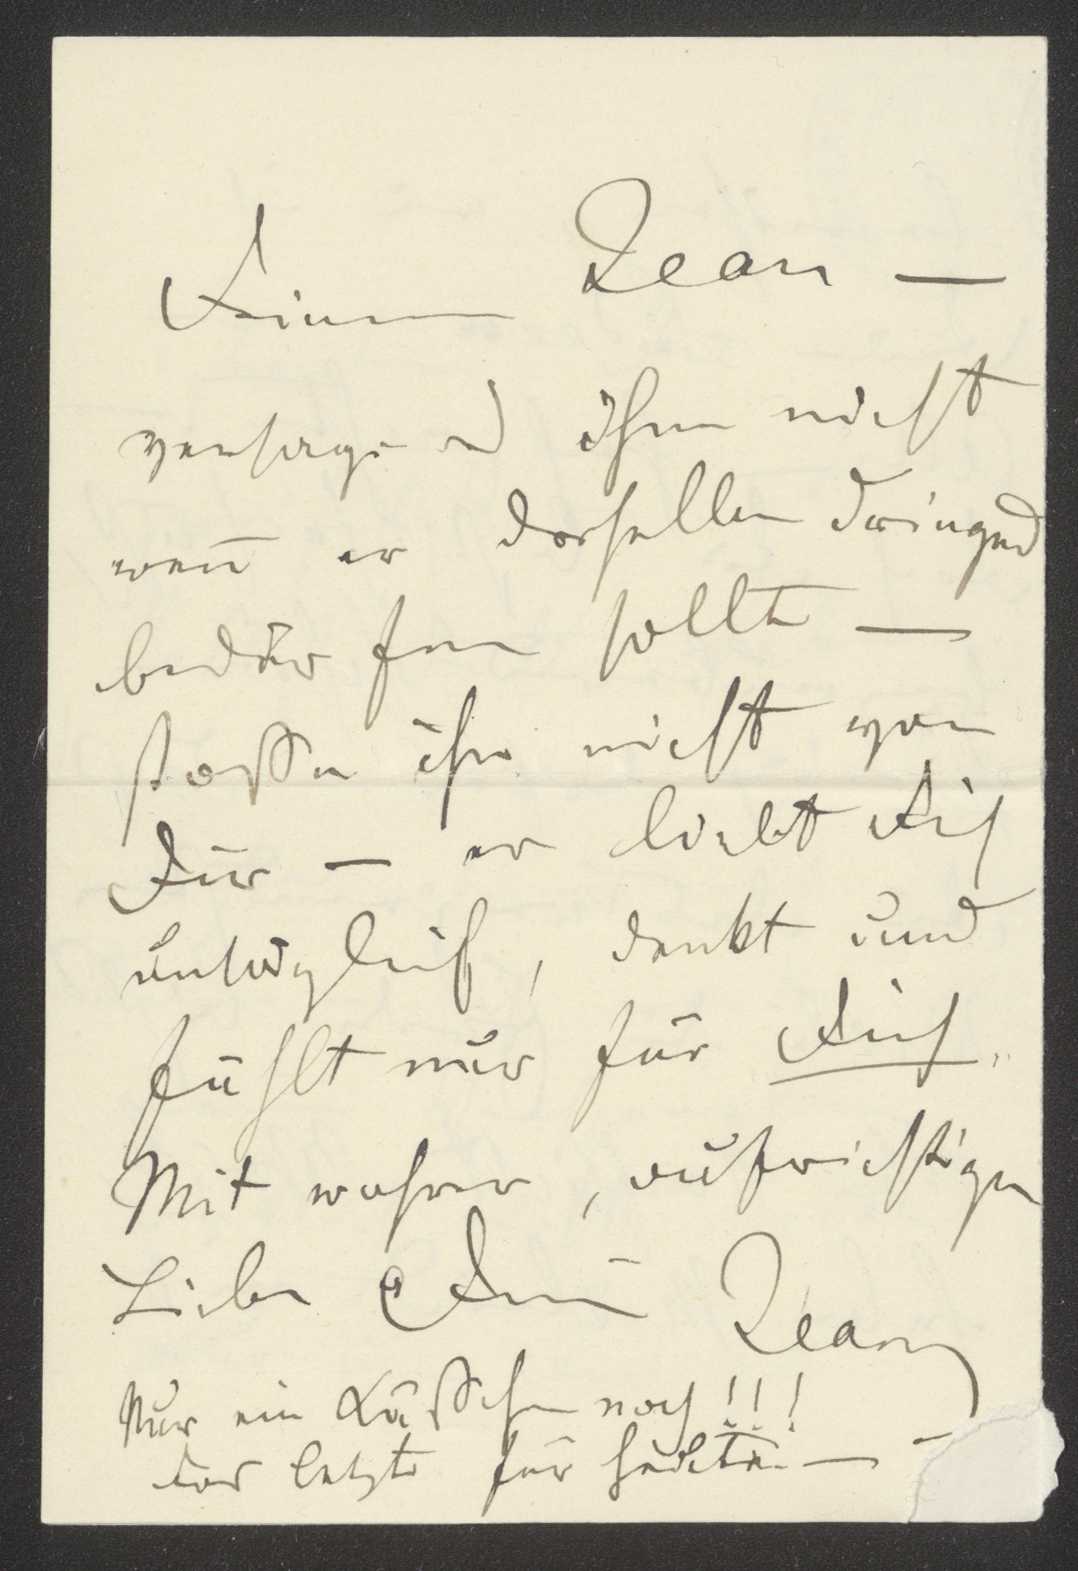 Deinem Jean —
versage es ihm nicht
weñ er derselben dringend
bedürfen sollte —
stosse ihn nicht von
Dir — er liebt Dich
unsäglich, denkt und
fühlt nur für Dich.
Mit wahrer, aufrichtigen
Liebe Dein Jean
Nur ein Küßchen noch!!!
das letzte für heute —